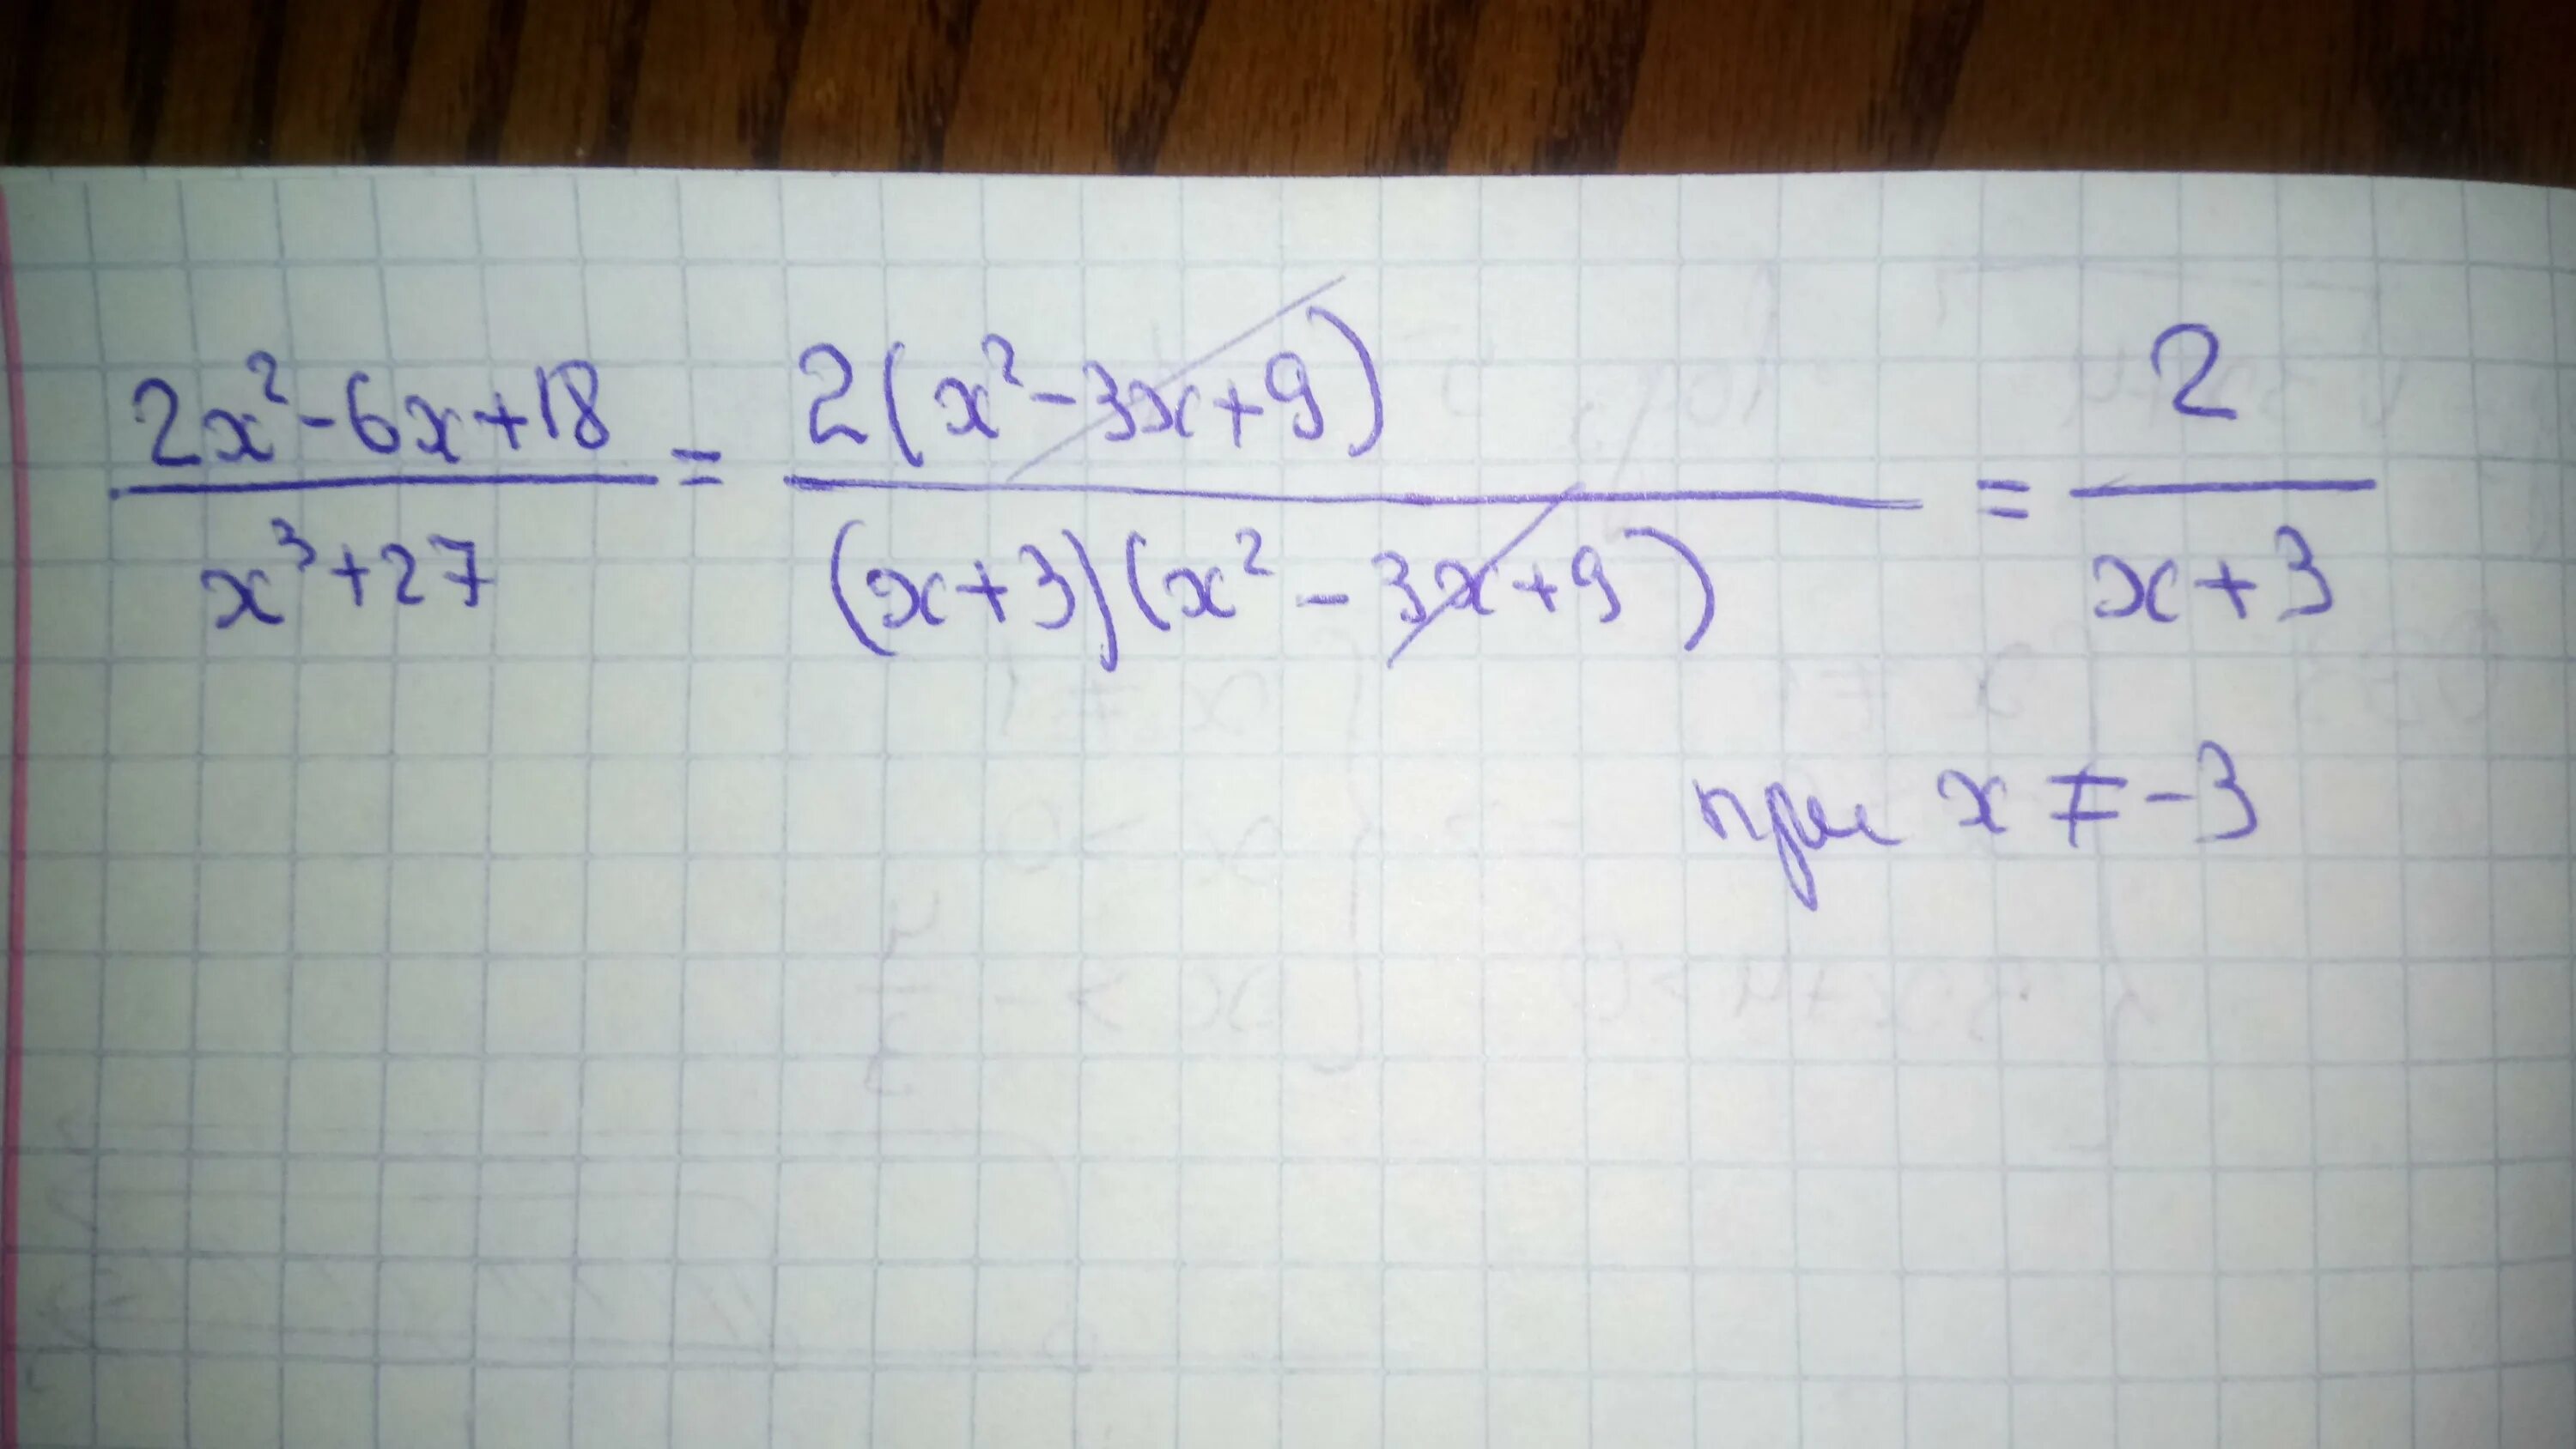 (2x²-6x+18)/(x³+27) = 2(x²-3x+9)/((x+3)(x²-3x+9)) = 2/(x+3)
при x ≠ -3